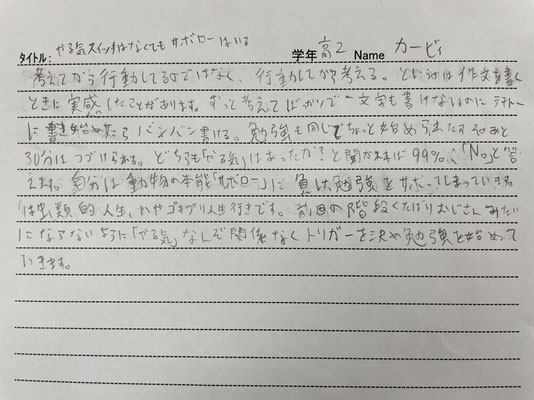 タイトル: やる気スイッチはなくてもサボローはいる 学年 高2 Name カービィ
考えてから行動してるのではなく、行動してから考える。というのは作文を書く
ときに実感したことがあります。ずっと考えてばかりで一文字も書けないのにテキトー
に書き始めたらバンバン書ける。勉強も同じでちょっと始められたらそのあと
30分はつづけられる。どちらも「やる気」はあったか?と聞かれれば99%、「No」と答
えます。自分は動物の本能「サボロー」に負け、勉強をサボってしまっていき
は虫類的人生、いやゴキブリ人生行きです。前回の階段くだばりおじさんみたい
にならないように「やる気」なんぞ関係なくトリガーを決め勉強を始めて
いきます。